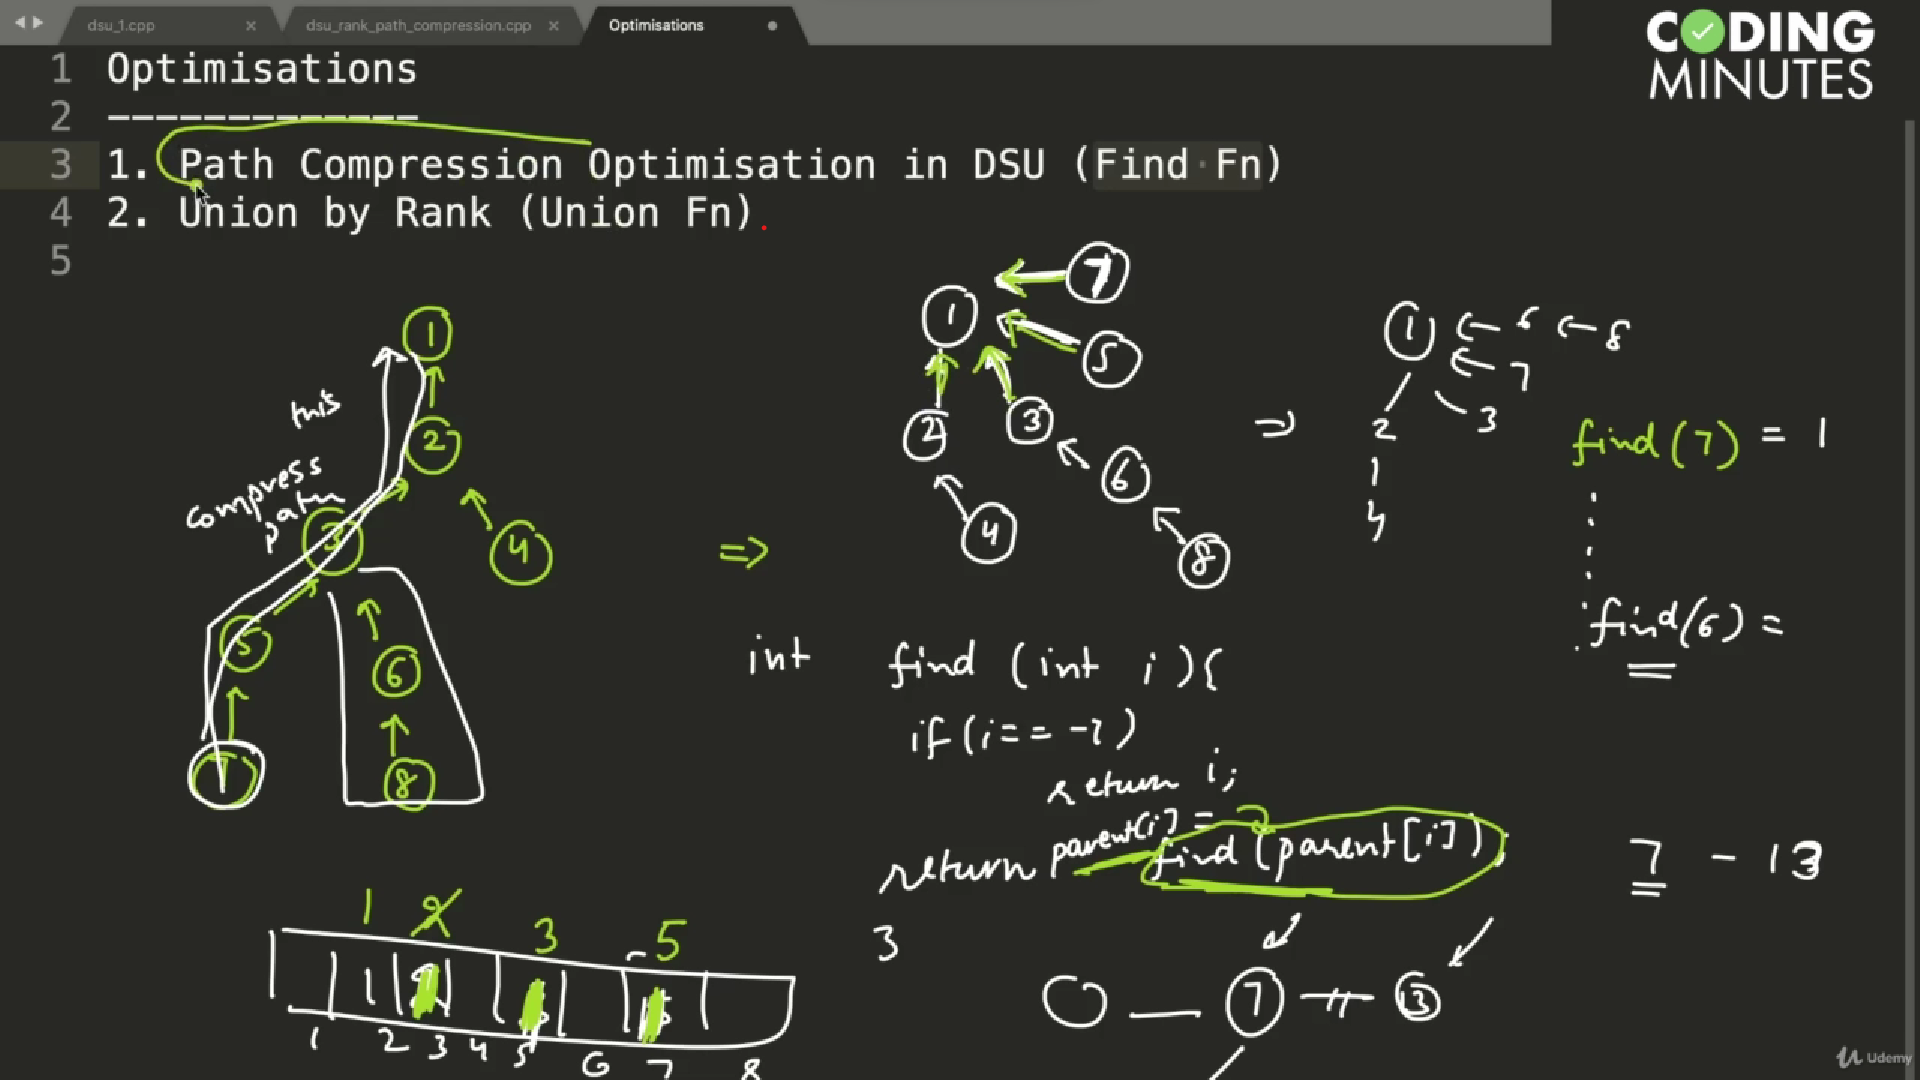 dsu_1.cpp × dsu_rank_path_compression.cpp × Optimisations
CODING
MINUTES
1 Optimisations
2 -------------
3 1. Path Compression Optimisation in DSU (Find Fn)
4 2. Union by Rank (Union Fn)
5
1
2
3
4
5
6
7
8
this
compress
path
⇒
1
7
5
2
3
6
4
8
⇒
1 ← 6 ← 8
← 7
2 3
4
find(7) = 1
find(6) =
int find (int i){
if(i == -1)
return i;
parent[i] =
return find(parent[i]);
7 - 13
1 2 3 5
1
1 2 3 4 5 6 7 8
3
7 13
Udemy